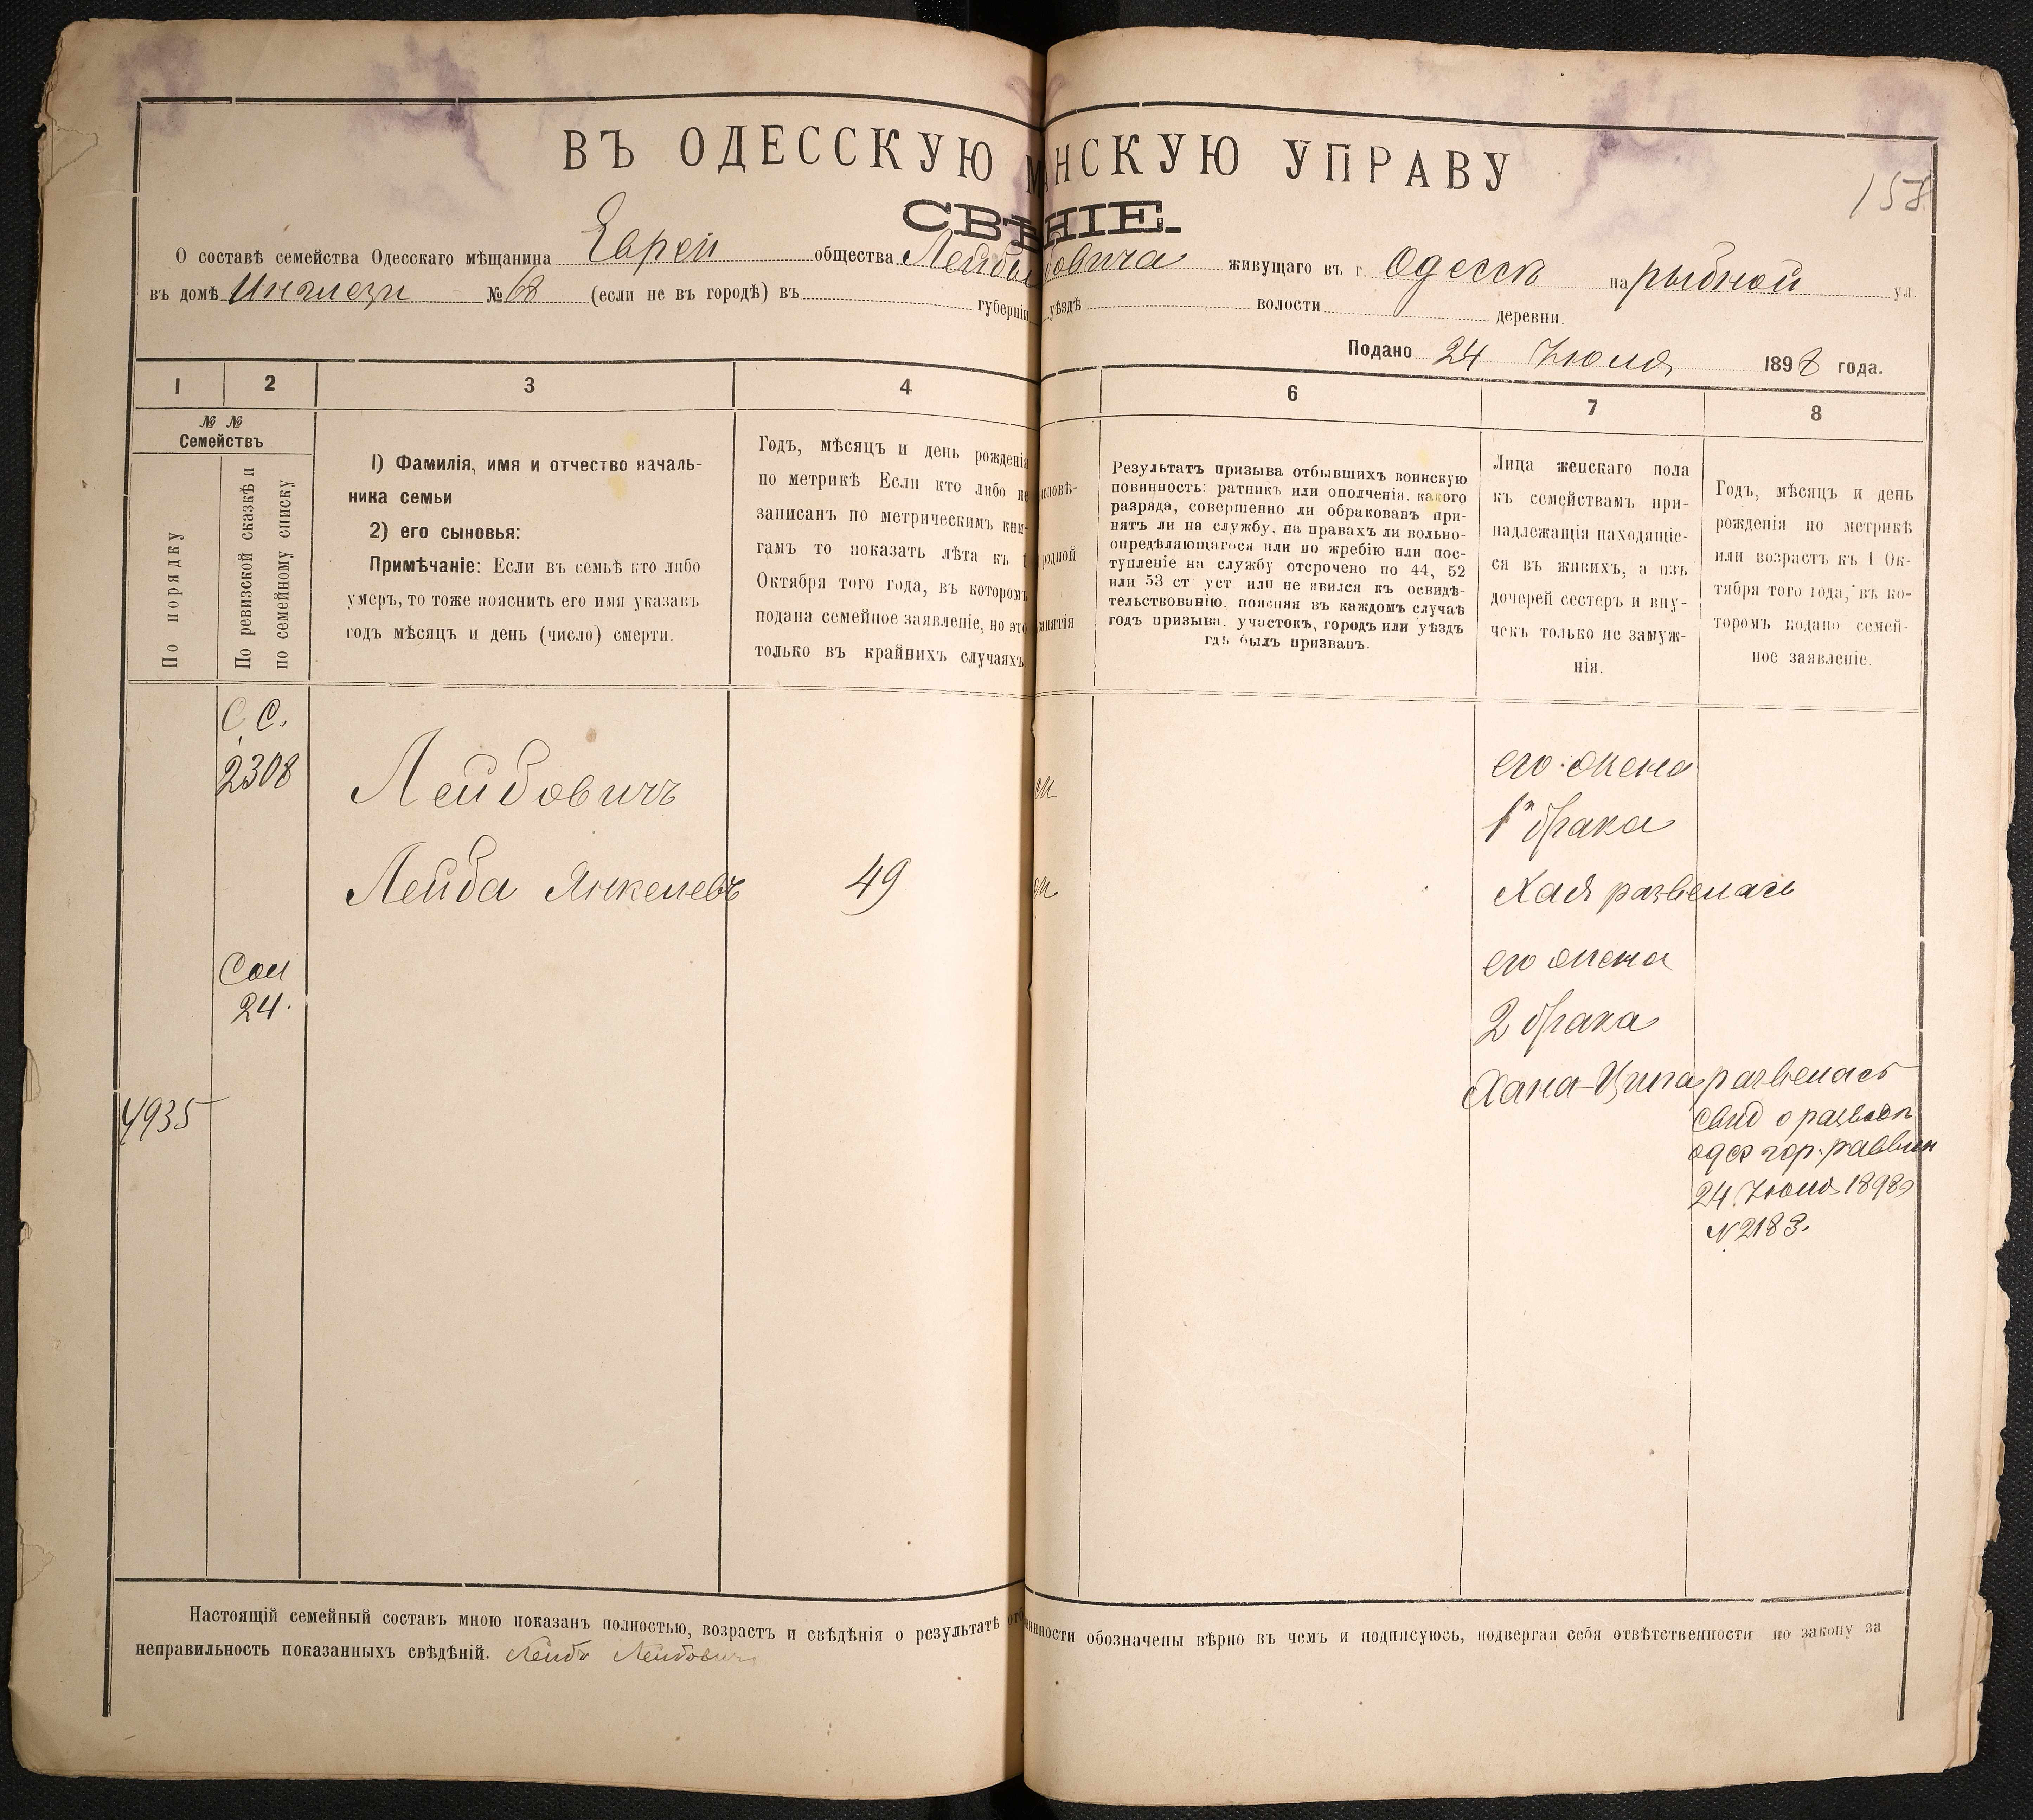 ВЪ ОДЕССКУЮ М АНСКУЮ УПРАВУ
158
СВѢ НІЕ.
О составѣ семейства Одесскаго мѣщанина Еврей общества Лейбы бовича живущаго въ г. Одессѣ на рыбной ул.
въ домѣ Инглези № 68 (если не въ городѣ) въ губерніи уѣздѣ волости деревни.
Подано 24 Июля 1898 года.
1 2 3 4 6 7 8
№ №
Семействъ
По порядку
По ревизской сказкѣ и
по семейному списку
1) Фамилія, имя и отчество началь-
ника семьи
2) его сыновья:
Примѣчаніе: Если въ семьѣ кто либо
умеръ, то тоже пояснить его имя указавъ
годъ мѣсяцъ и день (число) смерти.
Годъ, мѣсяцъ и день рожденія
по метрикѣ Если кто либо не
записанъ по метрическимъ кни-
гамъ то показать лѣта къ 1
Октября того года, въ которомъ
подана семейное заявленіе, но это
только въ крайнихъ случаяхъ
исповѣ-
родной
занятія
Результатъ призыва отбывшихъ воинскую
повинность: ратникъ или ополченія, какого
разряда, совершенно ли обракованъ при-
нятъ ли на службу, на правахъ ли вольно-
опредѣляющагося или по жребію или пос-
тупленіе на службу отсрочено по 44, 52
или 53 ст уст или не явился къ освидѣ-
тельствованію, поясняя въ каждомъ случаѣ
годъ призыва, участокъ, городъ или уѣздъ
гдѣ былъ призванъ.
Лица женскаго пола
къ семействамъ при-
надлежащія находящіе-
ся въ живихъ, а изъ
дочерей сестеръ и вну-
чекъ только не замуж-
нія.
Годъ, мѣсяцъ и день
рожденія по метрикѣ
или возрастъ къ 1 Ок-
тября того года, въ ко-
торомъ подано семей-
ное заявленіе.
С. С.
2308
Лейбовичъ
Лейба Янкелевъ
49
Сои
24.
4935
его жена
1го брака
Хая развелась
его жена
2 брака
Хана-Ципа развелась
свид о развод
одес гор. раввин
24 Июля 1898
N 2183.
Настоящій семейный составъ мною показанъ полностью, возрастъ и свѣдѣнія о результатѣ отб инности обозначены вѣрно въ чемъ и подписуюсь, подвергая себя отвѣтственности по закону за
неправильность показанныхъ свѣдѣній. Лейбъ Лейбовичъ